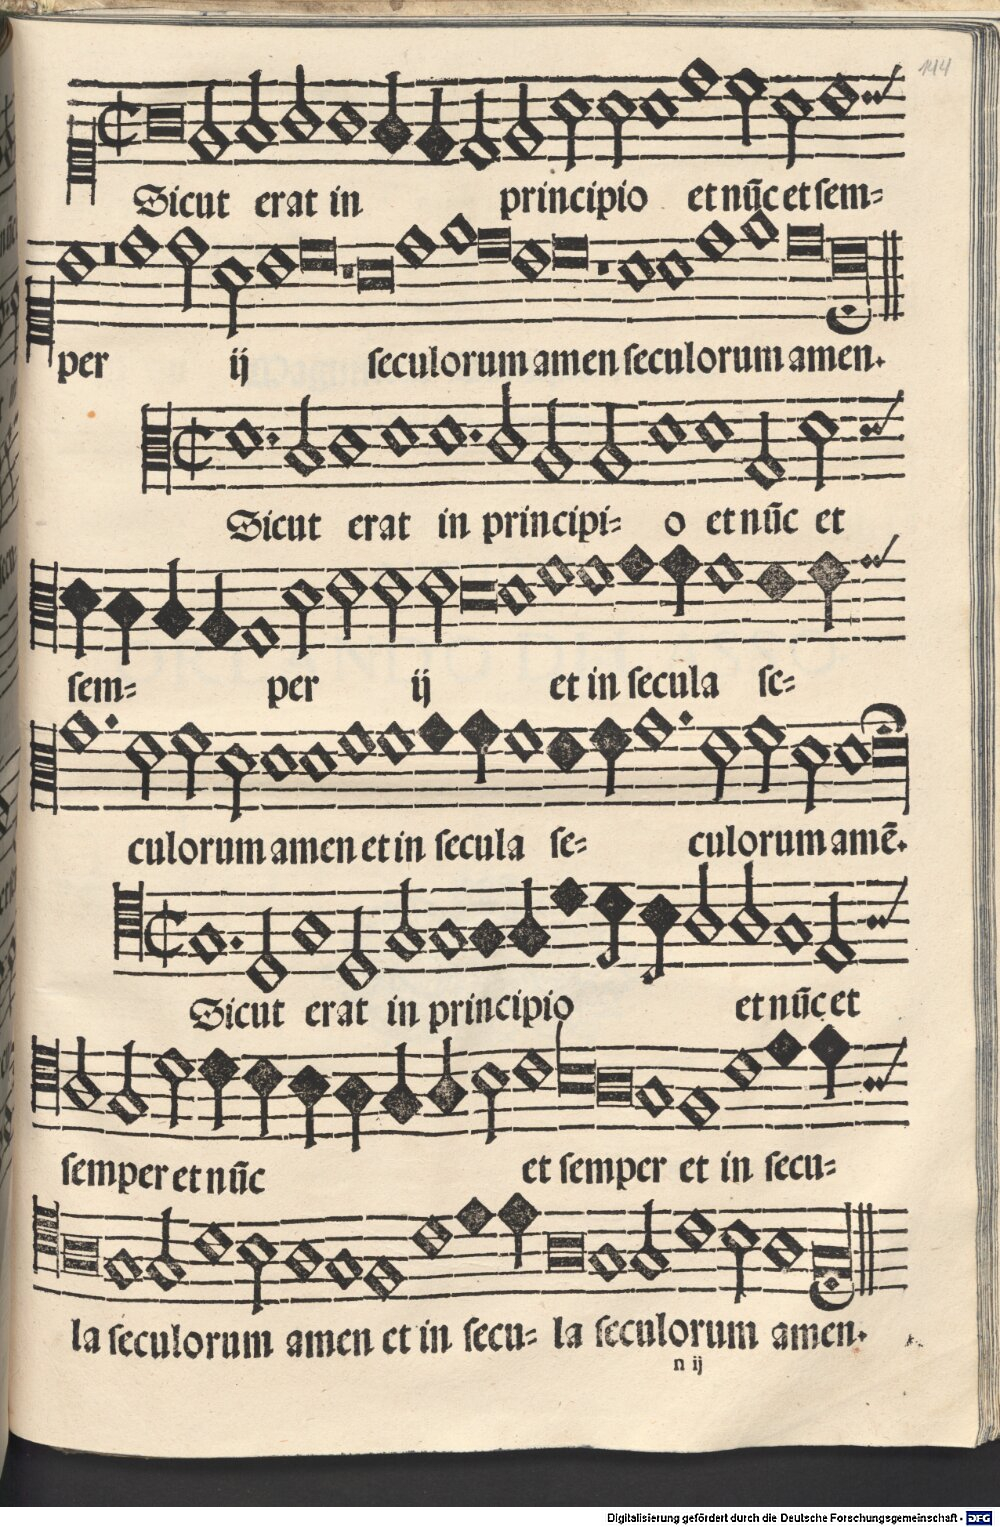 144
Sicut erat in principio et nūc et sem=
per ij seculorum amen seculorum amen.
Sicut erat in principi= o et nūc et
sem= per ij et in secula se=
culorum amen et in secula se= culorum amē.
Sicut erat in principio et nūc et
semper et nūc et semper et in secu=
la seculorum amen et in secu= la seculorum amen.
n ij
Digitalisierung gefördert durch die Deutsche Forschungsgemeinschaft - DFG